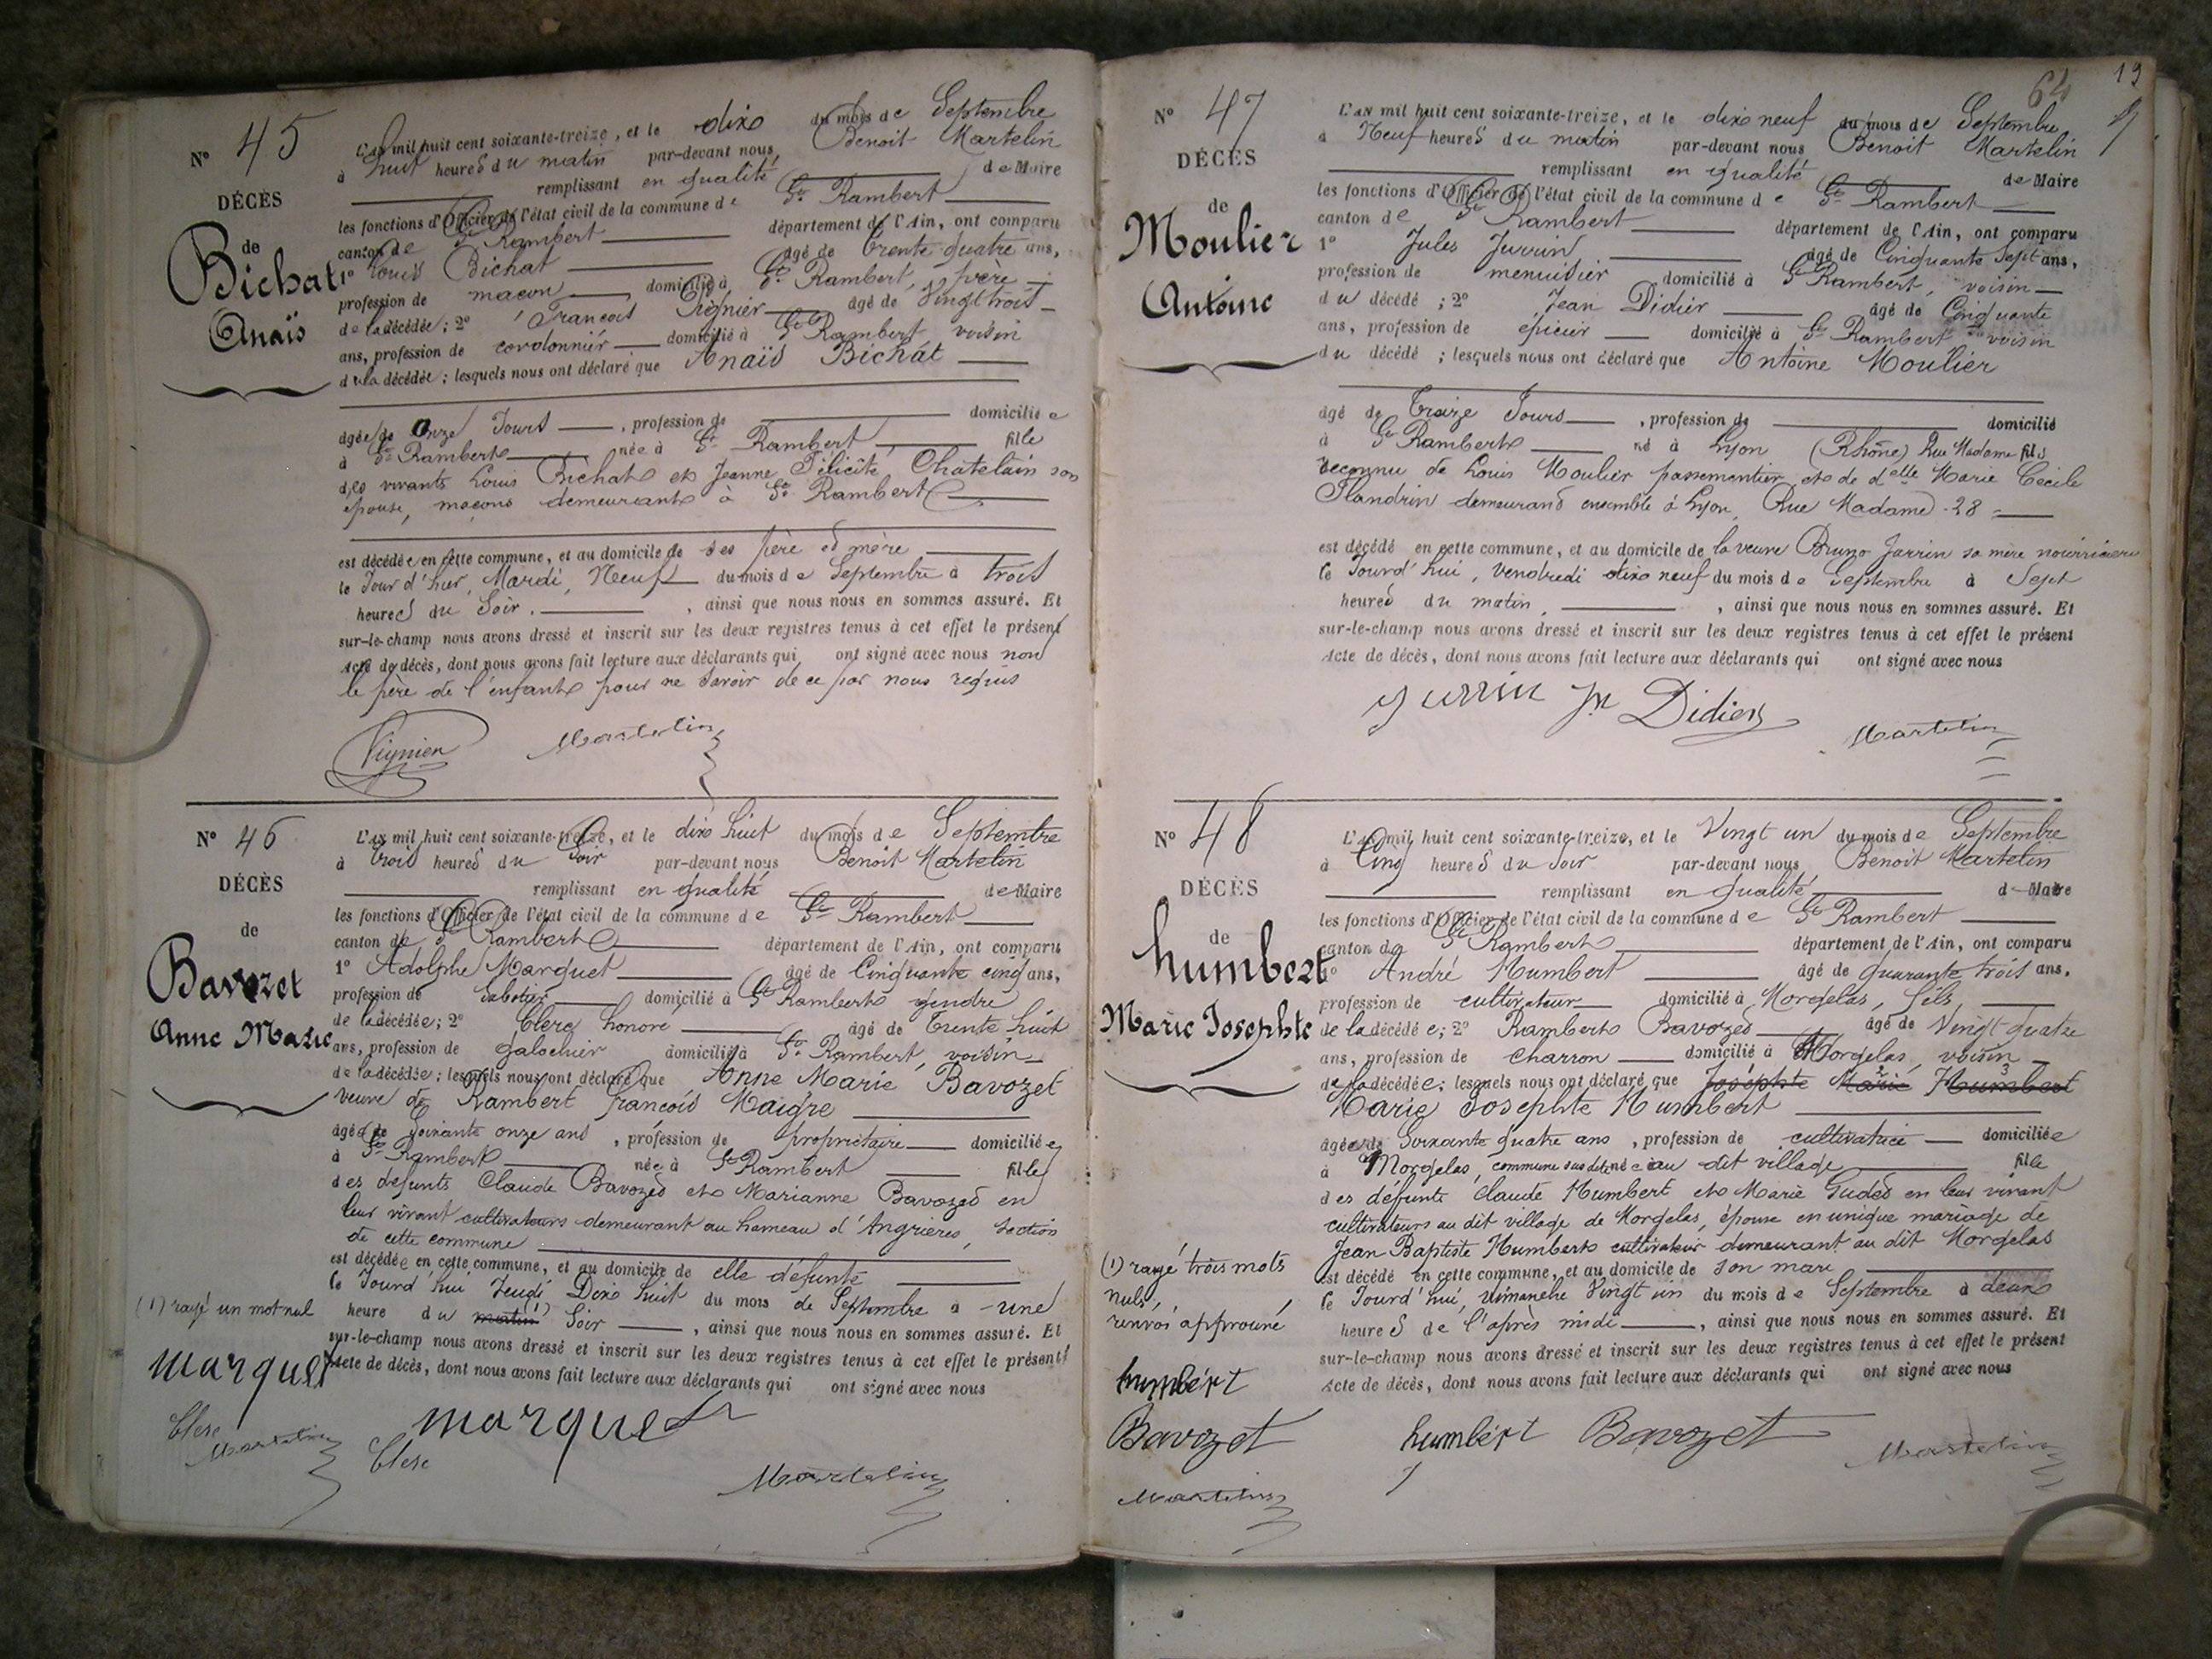 N° 45
DÉCÈS
de
Bichat
Anaïs
L'an mil huit cent soixante-treize, et le dix du mois de Septembre
à huit heures du matin par-devant nous Benoit Martelin
remplissant en qualité de Maire
les fonctions d'Officier de l'état civil de la commune de St Rambert
canton de St Rambert département de l'Ain, ont comparu
1° Louis Bichat âgé de trente quatre ans,
profession de maçon domicilié à St Rambert, père
de la décédée; 2° François Vignier âgé de Vingt trois
ans, profession de cordonnier domicilié à St Rambert voisin
de la décédée; lesquels nous ont déclaré que Anaïs Bichat
âgée de Onze Jours, profession de domiciliée
à St Rambert née à St Rambert fille
des vivants Louis Bichat et Jeanne Félicité Chatelain son
épouse, maçons demeurant à St Rambert
est décédée en cette commune, et au domicile de ses père et mère
le Jour d'hier, Mardi, Neuf du mois de Septembre à trois
heures du Soir, ainsi que nous nous en sommes assuré. Et
sur-le-champ nous avons dressé et inscrit sur les deux registres tenus à cet effet le présent
Acte de décès, dont nous avons fait lecture aux déclarants qui ont signé avec nous non
le père de l'enfant pour ne savoir de ce par nous requis
Vignier Martelin
N° 46
DÉCÈS
de
Bavozet
Anne Marie
L'an mil huit cent soixante-treize, et le dix huit du mois de Septembre
à trois heures du Soir par-devant nous Benoit Martelin
remplissant en qualité de Maire
les fonctions d'Officier de l'état civil de la commune de St Rambert
canton de St Rambert département de l'Ain, ont comparu
1° Adolphe Marquet âgé de Cinquante cinq ans,
profession de Sabotier domicilié à St Rambert gendre
de la décédée; 2° Clerc honoré âgé de Trente huit
ans, profession de galochier domicilié à St Rambert, voisin
de la décédée; lesquels nous ont déclaré que Anne Marie Bavozet
veuve de Rambert françois Maigre
âgée de Soixante onze ans, profession de propriétaire domiciliée
à St Rambert née à St Rambert fille
des défunts Claude Bavozed et Marianne Bavozed en
leur vivant cultivateurs demeurant au hameau d'Angrieres, section
de cette commune
est décédée en cette commune, et au domicile de elle défunte
le Jourd'hui Jeudi Dix huit du mois de Septembre à une
heure du matin (1) Soir, ainsi que nous nous en sommes assuré. Et
sur-le-champ nous avons dressé et inscrit sur les deux registres tenus à cet effet le présent
Acte de décès, dont nous avons fait lecture aux déclarants qui ont signé avec nous
(1) rayé un mot nul
marquet
Clerc
Martelin
marquet
Clerc
Martelin
64 19
N° 47
DÉCÈS
de
Moulier
Antoine
L'an mil huit cent soixante-treize, et le dix neuf du mois de Septembre
à Neuf heures du matin par-devant nous Benoit Martelin
remplissant en qualité de Maire
les fonctions d'Officier de l'état civil de la commune de St Rambert
canton de St Rambert département de l'Ain, ont comparu
1° Jules Jurrin âgé de Cinquante Sept ans,
profession de menuisier domicilié à St Rambert, voisin
du décédé; 2° Jean Didier âgé de Cinquante
ans, profession de épicier domicilié à St Rambert voisin
du décédé; lesquels nous ont déclaré que Antoine Moulier
âgé de Treize Jours, profession de domicilié
à St Rambert né à Lyon (Rhône) Rue Madame fils
reconnu de Louis Moulier passementier et de delle Marie Cécile
Flandrin demeurand ensemble à Lyon, Rue Madame 28
est décédé en cette commune, et au domicile de la veuve Bruno Jarrin sa mère nourricière
le Jourd'hui, Vendredi dix neuf du mois de Septembre à Sept
heures du matin, ainsi que nous nous en sommes assuré. Et
sur-le-champ nous avons dressé et inscrit sur les deux registres tenus à cet effet le présent
Acte de décès, dont nous avons fait lecture aux déclarants qui ont signé avec nous
Jurrin Jn Didier
Martelin
N° 48
DÉCÈS
de
humbert
Marie Josephte
L'an mil huit cent soixante-treize, et le Vingt un du mois de Septembre
à Cinq heures du Soir par-devant nous Benoit Martelin
remplissant en qualité de Maire
les fonctions d'Officier de l'état civil de la commune de St Rambert
canton de St Rambert département de l'Ain, ont comparu
1° André Humbert âgé de quarante trois ans,
profession de cultivateur domicilié à Morgelas, fils
de la décédée; 2° Rambert Bavozed âgé de Vingt quatre
ans, profession de charron domicilié à Morgelas, voisin
de la décédée; lesquels nous ont déclaré que Joséphte Marie Humbert
Marie Josephte Humbert
âgée de Soixante quatre ans, profession de cultivatrice domiciliée
à Morgelas, commune au dit village fille
des défunts Claude Humbert et Marie Guded en leur vivant
cultivateurs au dit village de Morgelas, épouse en unique mariage de
Jean Baptiste Humbert cultivateur demeurant au dit Morgelas
est décédé en cette commune, et au domicile de son mari
le Jourd'hui, dimanche Vingt un du mois de Septembre à deux
heures de l'après midi, ainsi que nous nous en sommes assuré. Et
sur-le-champ nous avons dressé et inscrit sur les deux registres tenus à cet effet le présent
Acte de décès, dont nous avons fait lecture aux déclarants qui ont signé avec nous
(1) rayé trois mots
nuls,
renvoi approuvé
humbert
Bavozet
Martelin
humbert Bavozet
Martelin